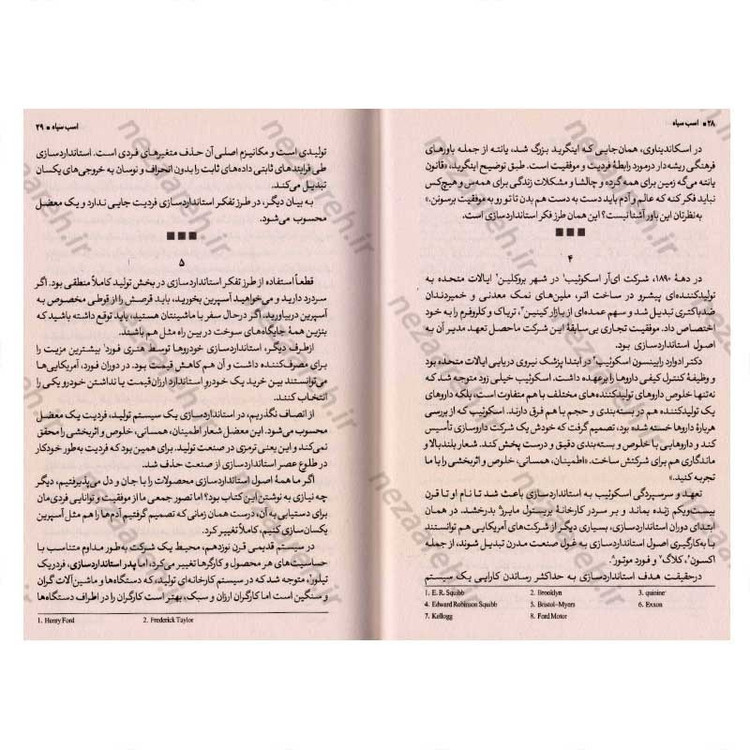 ۲۸ ■ اسب سیاه
در اسکاندیناوی، همان‌جایی که اینگرید بزرگ شد، یانته از جمله باورهای
فرهنگی ریشه‌دار درمورد رابطهٔ فردیت و موفقیت است. طبق توضیح اینگرید، «قانون
یانته می‌گه زمین برای همه گرده و چالشا و مشکلات زندگی برای همه‌س و هیچ‌کس
نباید فکر کنه که عالم و آدم باید دست به دست هم بدن تا تو رو به موفقیت برسونن.»
به‌نظرتان این باور آشنا نیست؟ این همان طرز فکر استانداردسازی است.
■■■
۴
در دههٔ ۱۸۹۰، شرکت ای‌آر اسکوئیب¹ در شهر بروکلین² ایالات متحده به
تولیدکننده‌ای پیشرو در ساخت اتر، ملین‌های نمک معدنی و خمیردندان
ضدباکتری تبدیل شد و سهم عمده‌ای از بازار کینین³، تریاک و کلروفرم را به خود
اختصاص داد. موفقیت تجاری بی‌سابقهٔ این شرکت ماحصل تعهد مدیر آن به
اصول استانداردسازی بود.
دکتر ادوارد رابینسون اسکوئیب⁴ در ابتدا پزشک نیروی دریایی ایالات متحده بود
و وظیفهٔ کنترل کیفی داروها را برعهده داشت. اسکوئیب خیلی زود متوجه شد که
نه‌تنها خلوص داروهای تولیدکننده‌های مختلف با هم متفاوت است، بلکه داروهای
یک تولیدکننده هم در بسته‌بندی و حجم با هم فرق دارند. اسکوئیب که از بررسی
هربارهٔ داروها خسته شده بود، تصمیم گرفت که خودش یک شرکت داروسازی تأسیس
کند و داروهایی با خلوص و بسته‌بندی دقیق و درست پخش کند. شعار بلندبالا و
ماندگاری هم برای شرکتش ساخت. «اطمینان، همسانی، خلوص و اثربخشی را با ما
تجربه کنید.»
تعهد و سرسپردگی اسکوئیب به استانداردسازی باعث شد تا نام او تا قرن
بیست‌ویکم زنده بماند و بر سردر کارخانهٔ بریستول مایرز⁵ بدرخشد. در همان
ابتدای دوران استانداردسازی، بسیاری دیگر از شرکت‌های آمریکایی هم توانستند
با به‌کارگیری اصول استانداردسازی به غول صنعت مدرن تبدیل شوند، از جمله
اکسون⁶، کلاگ⁷ و فورد موتور⁸.
درحقیقت هدف استانداردسازی به حداکثر رساندن کارایی یک سیستم
1. E. R. Squibb 2. Brooklyn 3. quinine
4. Edward Robinson Squibb 5. Bristol-Myers 6. Exxon
7. Kellogg 8. Ford Motor
اسب سیاه ■ ۲۹
تولیدی است و مکانیزم اصلی آن حذف متغیرهای فردی است. استانداردسازی
طی فرایندهای ثابتی داده‌های ثابت را بدون انحراف و نوسان به خروجی‌های یکسان
تبدیل می‌کند.
به بیان دیگر، در طرز تفکر استانداردسازی فردیت جایی ندارد و یک معضل
محسوب می‌شود.
■■■
۵
قطعاً استفاده از طرز تفکر استانداردسازی در بخش تولید کاملاً منطقی بود. اگر
سردرد دارید و می‌خواهید آسپرین بخورید، باید قرصش را از قوطی مخصوص به
آسپرین دربیاورید. اگر درحال سفر با ماشینتان هستید، باید توقع داشته باشید که
بنزین همهٔ جایگاه‌های سوخت در بین راه مثل هم باشند.
ازطرف دیگر، استانداردسازی خودروها توسط هنری فورد¹ بیشترین مزیت را
برای مصرف‌کننده داشت و آن هم کاهش قیمت بود. در دوران فورد، آمریکایی‌ها
می‌توانستند بین خرید یک خودرو استاندارد ارزان‌قیمت یا نداشتن خودرو یکی را
انتخاب کنند.
از انصاف نگذریم، در استانداردسازی یک سیستم تولید، فردیت یک معضل
محسوب می‌شود. این معضل شعار اطمینان، همسانی، خلوص و اثربخشی را محقق
نمی‌کند و این یعنی ترمزی در صنعت تولید. برای همین بود که فردیت به‌طور خودکار
در طلوع عصر استانداردسازی از صنعت حذف شد.
اگر ما همهٔ اصول استانداردسازی را با جان و دل می‌پذیرفتیم، دیگر
چه نیازی به نوشتن این کتاب بود؟ اما تصور جمعی ما از موفقیت و توانایی فردی‌مان
برای دستیابی به آن، درست همان زمانی که تصمیم گرفتیم آدم‌ها را هم مثل آسپرین
یکسان‌سازی کنیم، کاملاً تغییر کرد.
در سیستم قدیمی قرن نوزدهم، محیط یک شرکت به‌طور مداوم متناسب با
حساسیت‌های هر محصول و کارگرها تغییر می‌کرد، اما پدر استانداردسازی، فردریک
تیلور²، متوجه شد که در سیستم کارخانه‌ای تولید، که دستگاه‌ها و ماشین‌آلات گران
و سنگین است اما کارگران ارزان و سبک، بهتر است کارگران را در اطراف دستگاه‌ها
1. Henry Ford 2. Frederick Taylor
nezaareh.ir
نظاره